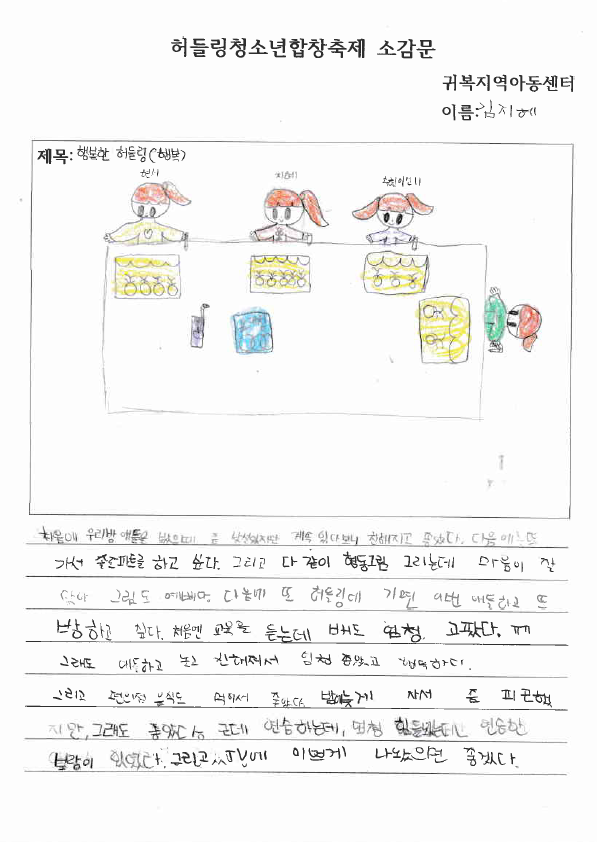 허들링청소년합창축제 소감문
귀복지역아동센터
이름:김지혜
제목: 행복한 허들링(행복)
현서 지혜
처음에 우리방 애들을 봤을때 좀 낯설었지만 계속 있다보니 친해지고 좋았다. 다음에는 또
가서 소프라노를 하고 싶다. 그리고 다 같이 협동그림 그리는데 마음이 잘
맞아 그림도 예뻐 다음에 또 허들링에 가면 이번 애들하고 또
방하고 싶다. 처음엔 교육을 듣는데 배도 엄청 고팠다. ㅠㅠ
그래도 애들하고 놀고 친해져서 엄청 좋았고 행복하다.
그리고 편의점 음식도 먹어서 좋았다. 밤늦게 자서 좀 피곤했
지만, 그래도 좋았다. 근데 연습하는데, 엄청 힘들었는데 연습한
보람이 있었다. 그리고 TV에 이쁘게 나왔으면 좋겠다.